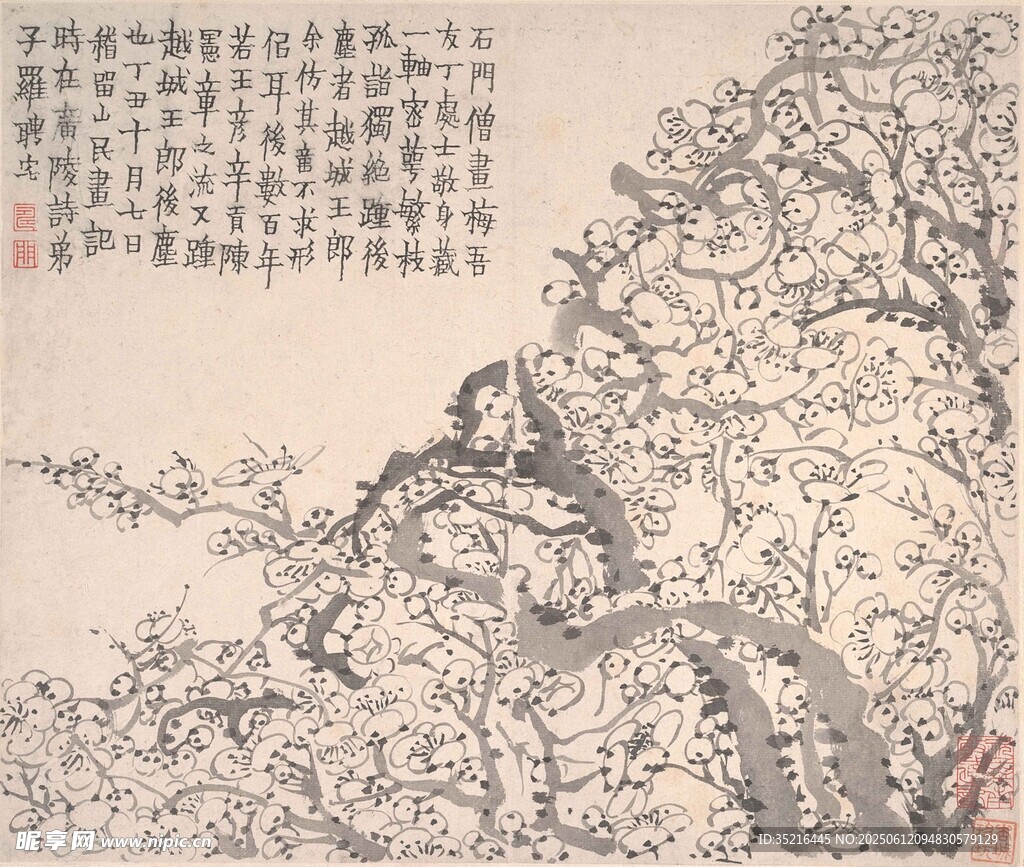 石門僧畫梅吾
友丁處士敬身藏
一軸密萼繁枝
孤詣獨絕踵後
塵者越城王郎
余仿其意不求形
侣耳後數百年
若王彦辛貢陳
憲章之流又踵
越城王郎後塵
也丁丑十月七日
稽留山民畫記
時在廣陵詩弟
子羅聘宅
昵享网 www.nipic.cn
ID:35216445 NO:20250612094830579129